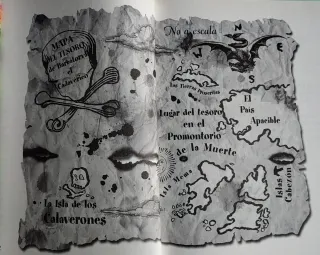 MAPA
DEL TESORO
de Barbatorva
el
Calaverón
No a escala
N
E
S
Las Tierras Proscritas
El
País
Apacible
Lugar del tesoro
en el
Promontorio
de la Muerte
Isla Mema
Islas Cabezón
La Isla de los
Calaverones